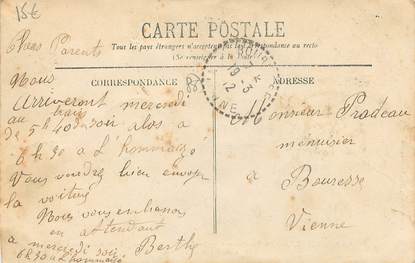 15€
CARTE POSTALE
Tous les pays étrangers n'acceptent pas la correspondance au recto
(Se renseigner à la Poste)
CORRESPONDANCE
ADRESSE
Chers Parents
Nous
arriveront mercredi
au train
de 5h40 soir alors a
6h30 a L'hommaizé
Vous voudrez bien envoyer
la voiture
Nous vous embrassons
en attendant
a mercredi soir
Berthe
6h30 a L'hommaizé
Monsieur Pradeau
menuisier
a Bouresse
Vienne